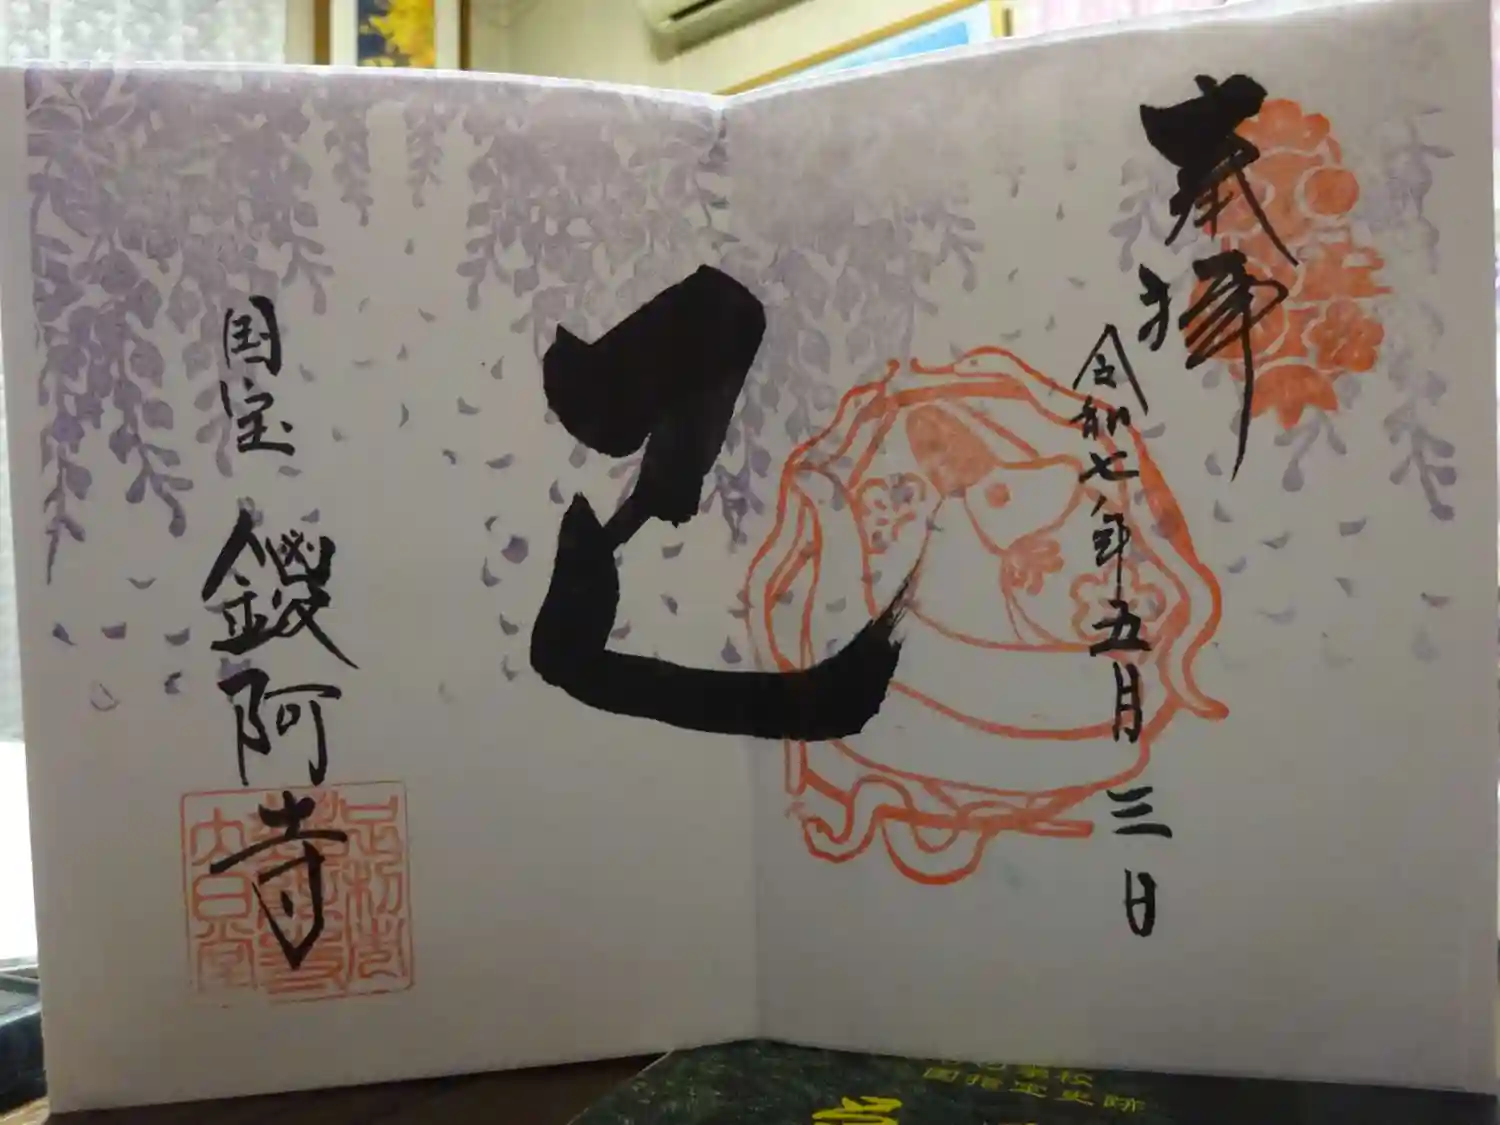 奉拝
令和七年五月三日
巳
国宝
鑁阿寺
大日堂
国指定史跡